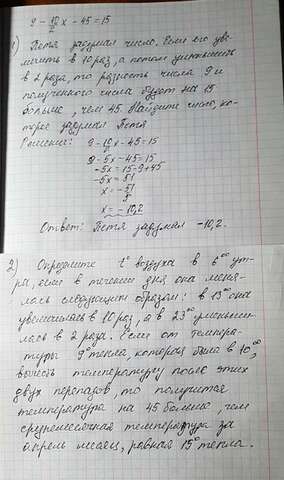 9 - 10/2 x - 45 = 15
1) Петя задумал число. Если его уве-
личить в 10 раз, а потом уменьшить
в 2 раза, то разность числа 9 и
полученного числа будет на 15
больше, чем 45. Найдите число ко-
торое задумал Петя
Решение: 9 - 10/2 x - 45 = 15
9 - 5x - 45 = 15
-5x = 15 - 9 + 45
-5x = 51
x = - 51/5
x = -10,2
Ответ: Петя задумал -10,2.
2) Определите t° воздуха в 6⁰⁰ ут-
ра, если в течение дня она меня-
лась следующим образом: в 13⁰⁰ она
увеличилась в 10 раз, а в 23⁰⁰ уменьши-
лась в 2 раза. Если от темпера-
туры 9° тепла, которая была в 10⁰⁰,
вычесть температуру после этих
двух перепадов, то получится
температура на 45 больше, чем
среднемесячная температура за
апрель месяц, равная 15° тепла.